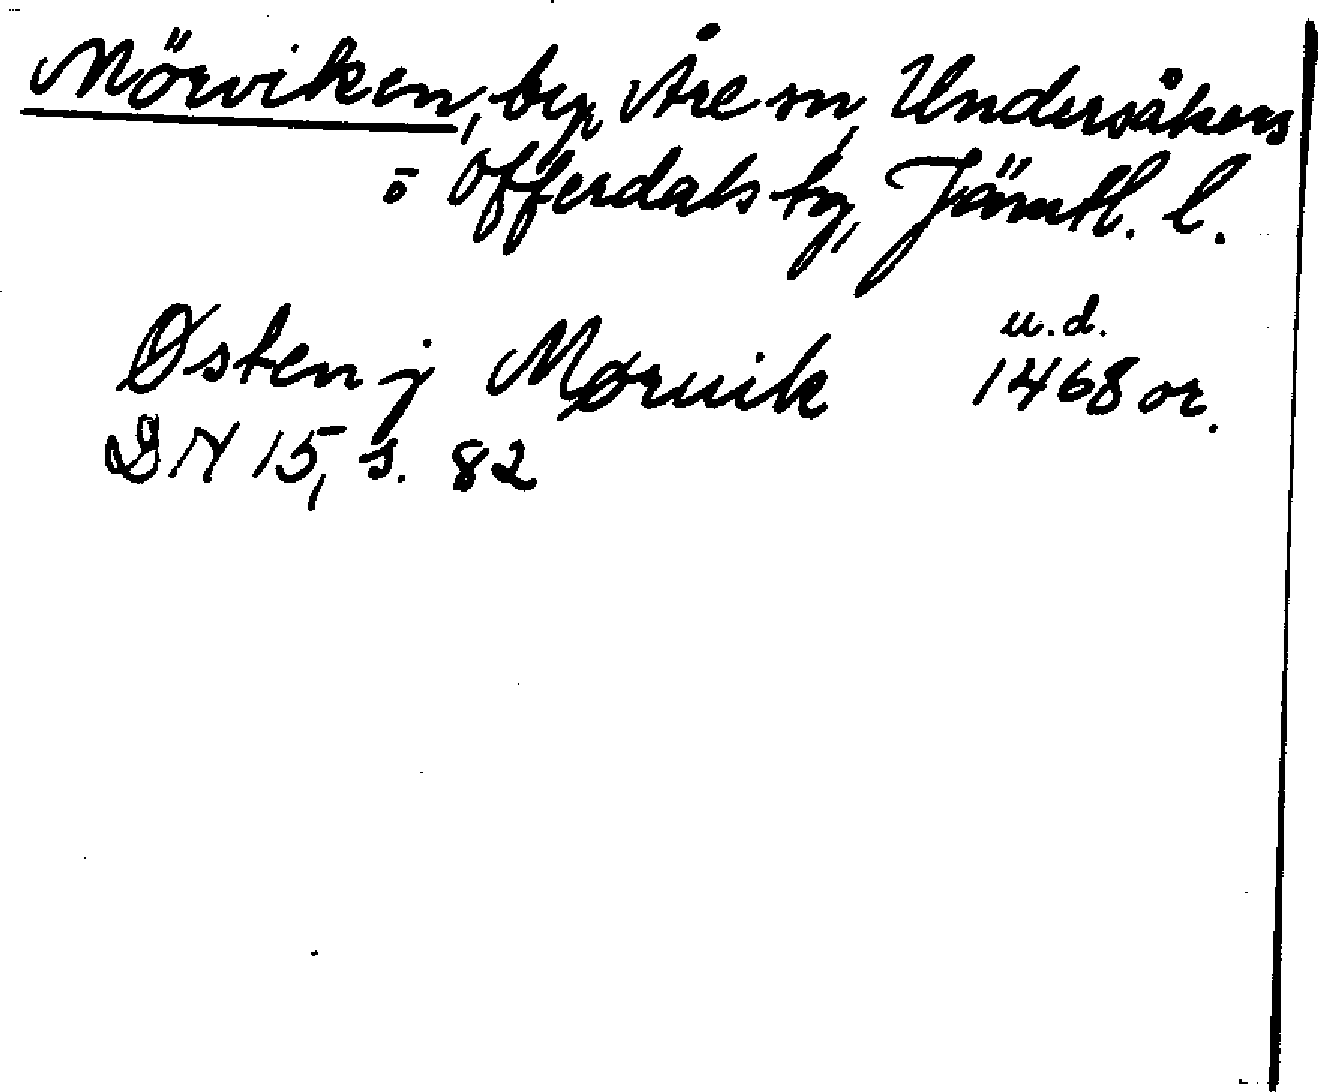 Mörviken, by, Åre sn, Undersåkers
o Offerdals tg, Jämtl. l.
u.d.
Østen j Møruik 1468 or.
DN 15, s. 82